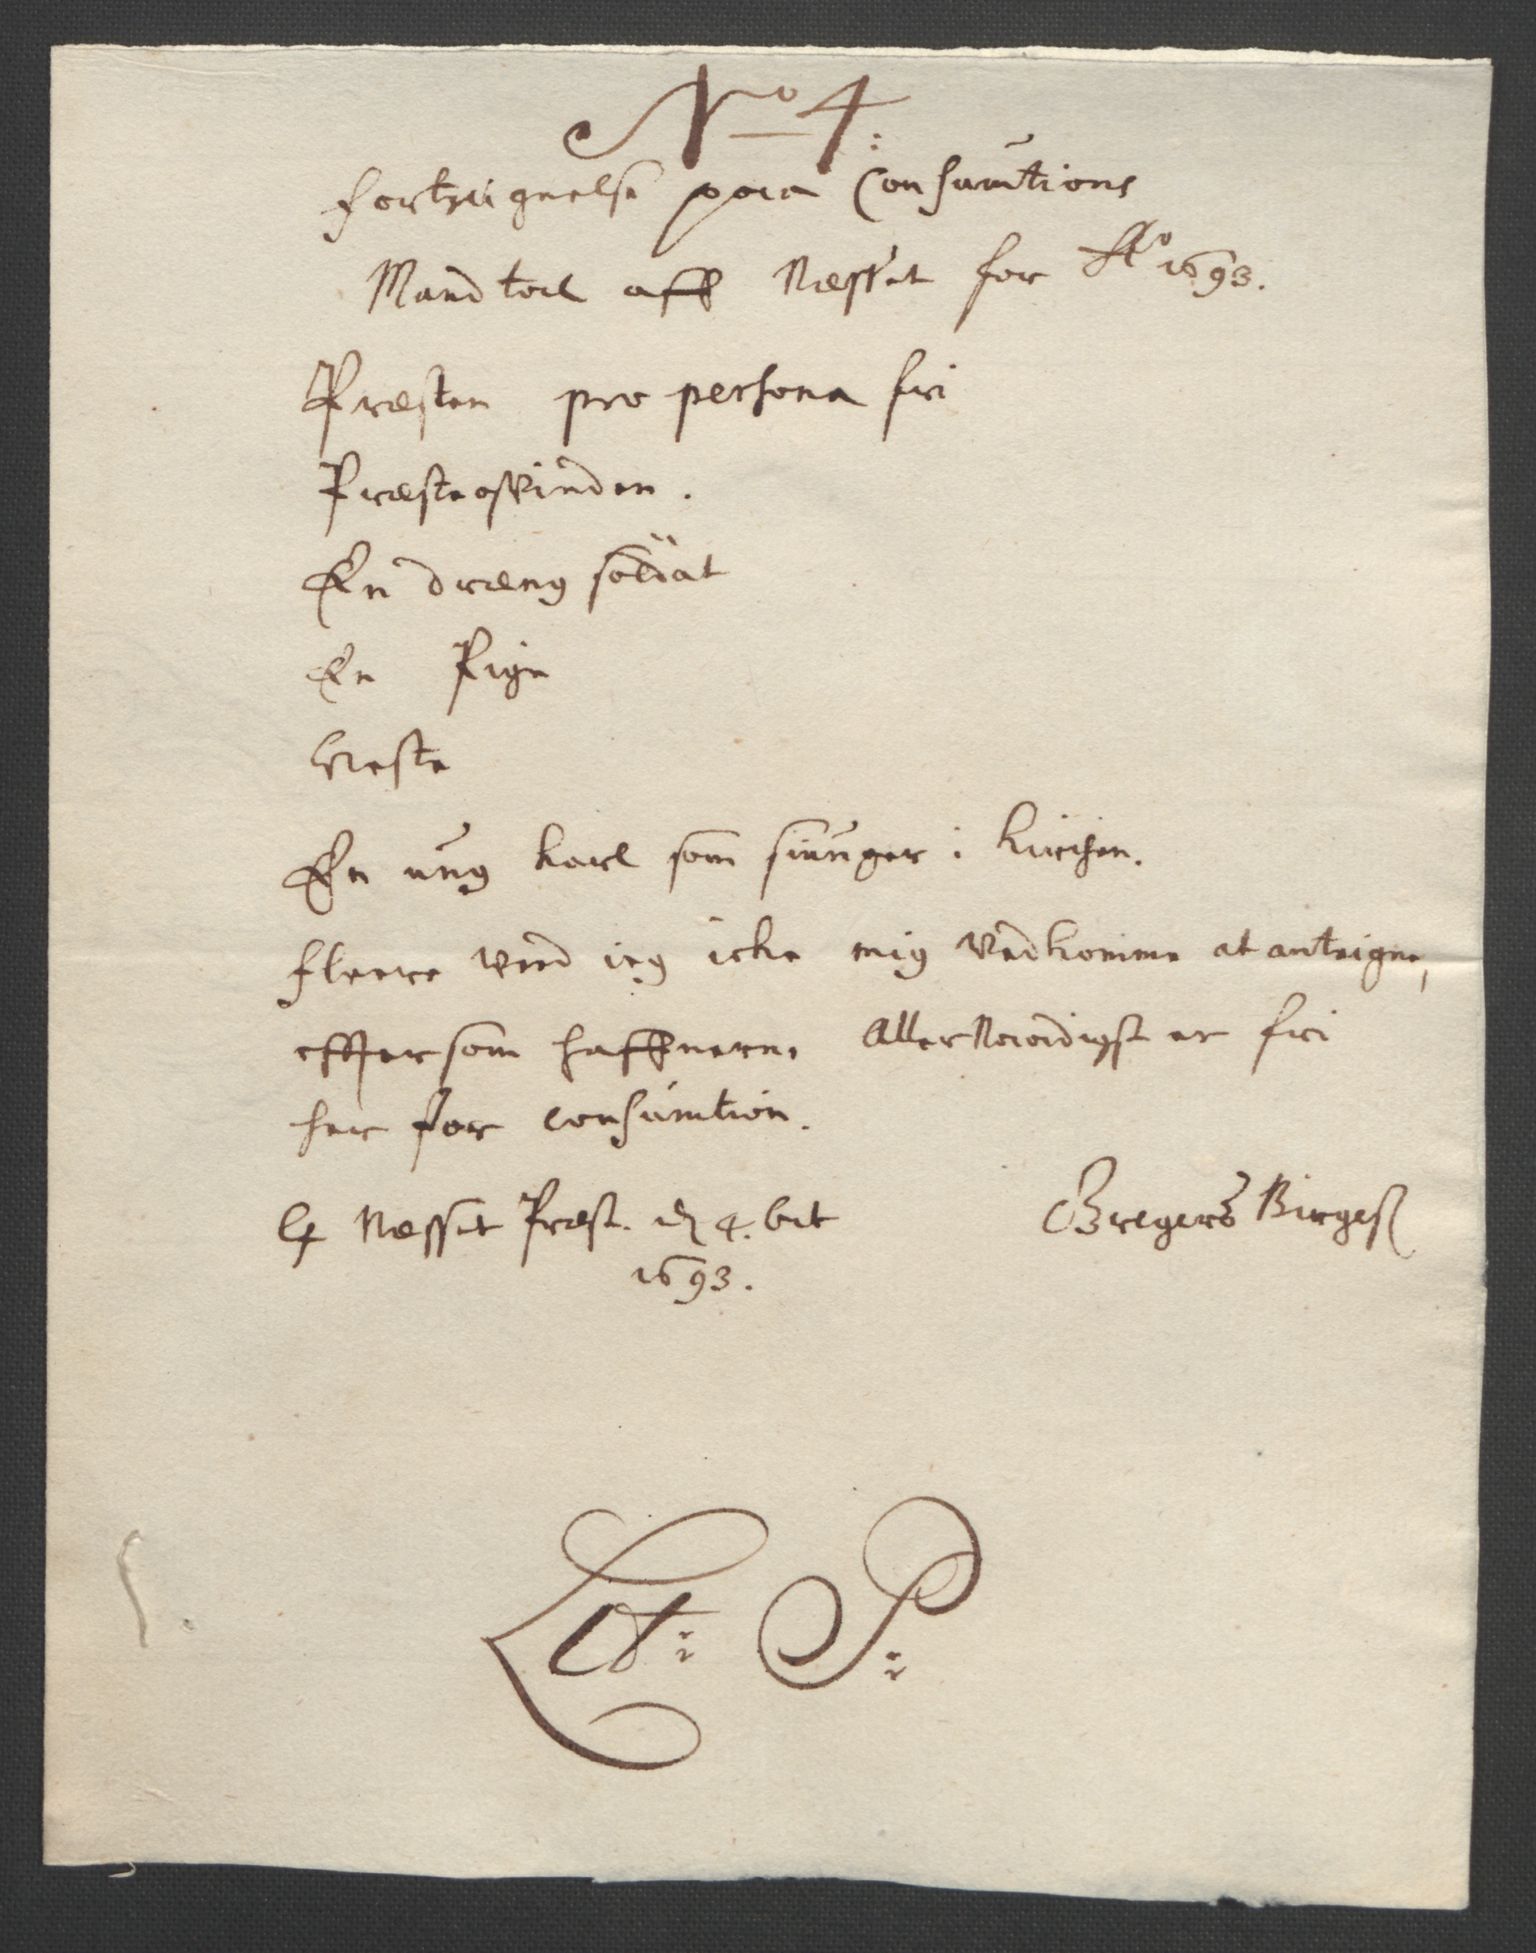 No 4:
forteignelse paa Consumtions
Mandtal aff Næsset for Ao 1693.
Præsten pro persona fri
Præsteqvinden.
En dræng soldat
En Pige
Neste
En ung karl som siunger i kirchen.
fleere veed ieg icke mig vedkomme at anteigne,
effter som haffnerne Allernaadigst er fri
her for consumtion.
Næsset Præst. d 4.
1693.
Gregers Birgess
Lit: P: